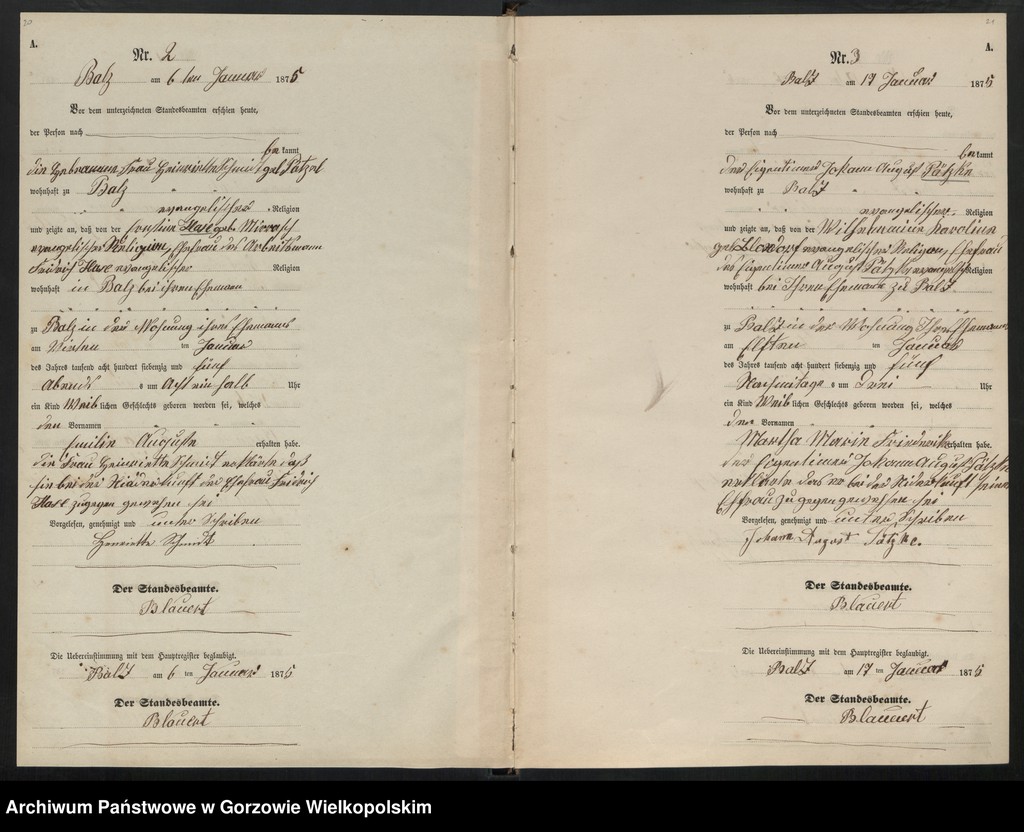 20
A.
Nr. 2
Balz am 6 ten Januar 1875
Vor dem unterzeichneten Standesbeamten erschien heute,
der Person nach
be kannt
die Frau Henriette Schmit geb Pätzel
wohnhaft zu Balz
evangelischer Religion
und zeigte an, daß von der Hase geb
evangelischer Religion, Ehefrau des Arbeitsmann
Fridrich Hase evangelischer Religion
wohnhaft in Balz bei ihren Ehemann
zu Balz in der Wohnung ihres Ehemanns
am Vierten ten Januar
des Jahres tausend acht hundert siebenzig und fünf
Abends um Acht ein halb Uhr
ein Kind Weib lichen Geschlechts geboren worden sei, welches
den Vornamen
Emilie Auguste erhalten habe.
die Frau Henriette Schmit erklärte daß
sie bei der Niederkunft der Ehefrau Fridrich
Hase zugegen gewesen sei
Vorgelesen, genehmigt und unter Schrieben
Henriette Schmidt
Der Standesbeamte.
Blauert
Die Uebereinstimmung mit dem Hauptregister beglaubigt.
Balz am 6 ten Januar 1875
Der Standesbeamte.
Blauert
21
A.
Nr. 3
Balz am 17 Januar 1875
Vor dem unterzeichneten Standesbeamten erschien heute,
der Person nach
be kannt
der Eigentümer Johann August Pätzke
wohnhaft zu Balz
evangelischer Religion
und zeigte an, daß von der Wilhelmine Karoline
geb evangelischer Religion, Ehefrau
des Eigentümer August Pätzke evangelisch Religion
wohnhaft bei Ihren Ehemann zu Balz
zu Balz in der Wohnung Ihres Ehemanns
am Elften ten Januar
des Jahres tausend acht hundert siebenzig und fünf
Nachmitags um Drei Uhr
ein Kind Weib lichen Geschlechts geboren worden sei, welches
den Vornamen
Martha Marie Friedrike erhalten habe.
der Eigentümer Johann August Pätzke
erklärte das er bei der Niederkunft seiner
Ehefrau zugegen gewesen sei
Vorgelesen, genehmigt und unter Schrieben
Johann August Pätzke.
Der Standesbeamte.
Blauert
Die Uebereinstimmung mit dem Hauptregister beglaubigt.
Balz am 17 ten Januar 1875
Der Standesbeamte.
Blauert
Archiwum Państwowe w Gorzowie Wielkopolskim